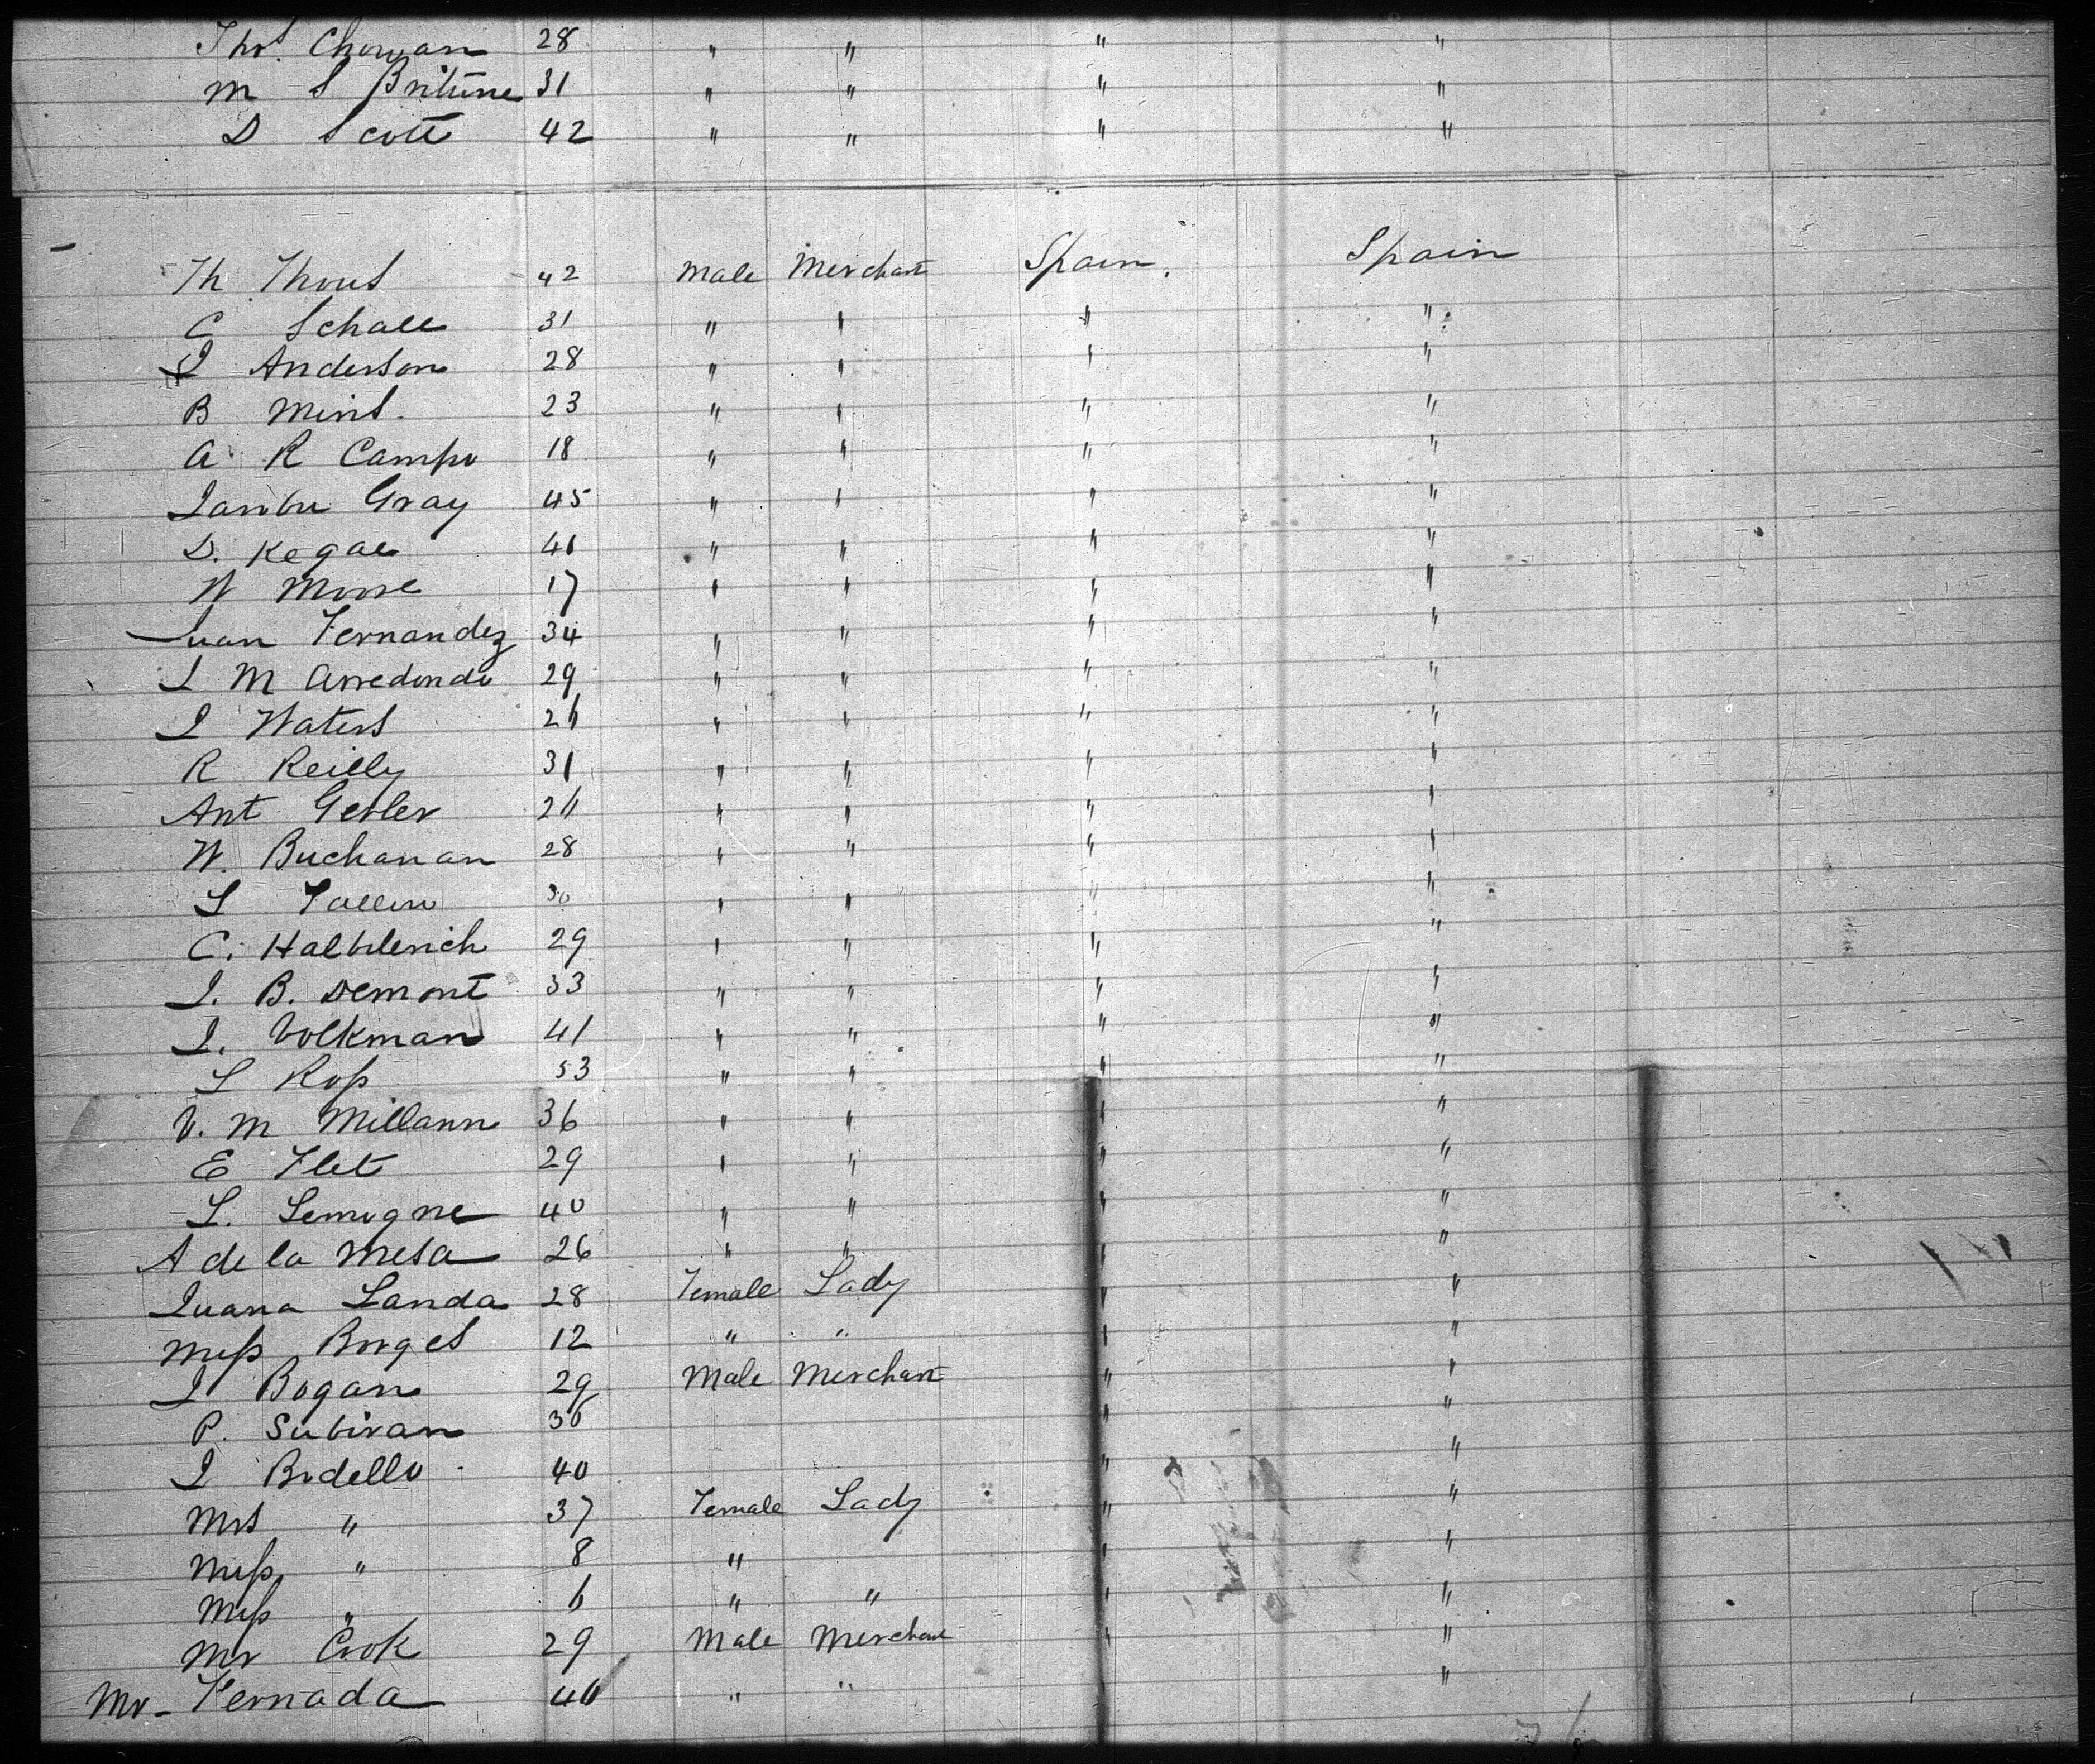 Thos. Chowan 28 " " " "
M S Britune 31 " " " "
D Scott 42 " " " "
Th Thous 42 Male Merchant Spain. Spain
C Schall 31 " " " "
J Anderson 28 " " " "
B Mins. 23 " " " "
A R Campo 18 " " " "
Gray 45 " " " "
D. Kegal " " " "
W Morse 17 " " " "
Juan Fernandez 34 " " " "
J M Arredondo 29 " " " "
J Waters 26 " " " "
R Reilly 31 " " " "
Ant Gebler 26 " " " "
W. Buchanan 28 " " " "
S " " " "
C. 29 " " " "
J. B. Demont 33 " " " "
J. Volkman 41 " " " "
S Ross 53 " " " "
V. M Millann 36 " " " "
E Flet 29 " " " "
L. Lemogne 40 " " " "
A de la Mesa 26 " " " "
Juana Landa 28 Female Lady " "
Miss Borges 12 " " " "
J Bogan 29 Male Merchant " "
P. Subiran " "
J Bodello 40 " "
Mrs " 37 Female Lady " "
Miss " 8 " " "
Miss " 6 " " " "
Mr Cook 29 Male Merchant " "
Mr Fernada " " "